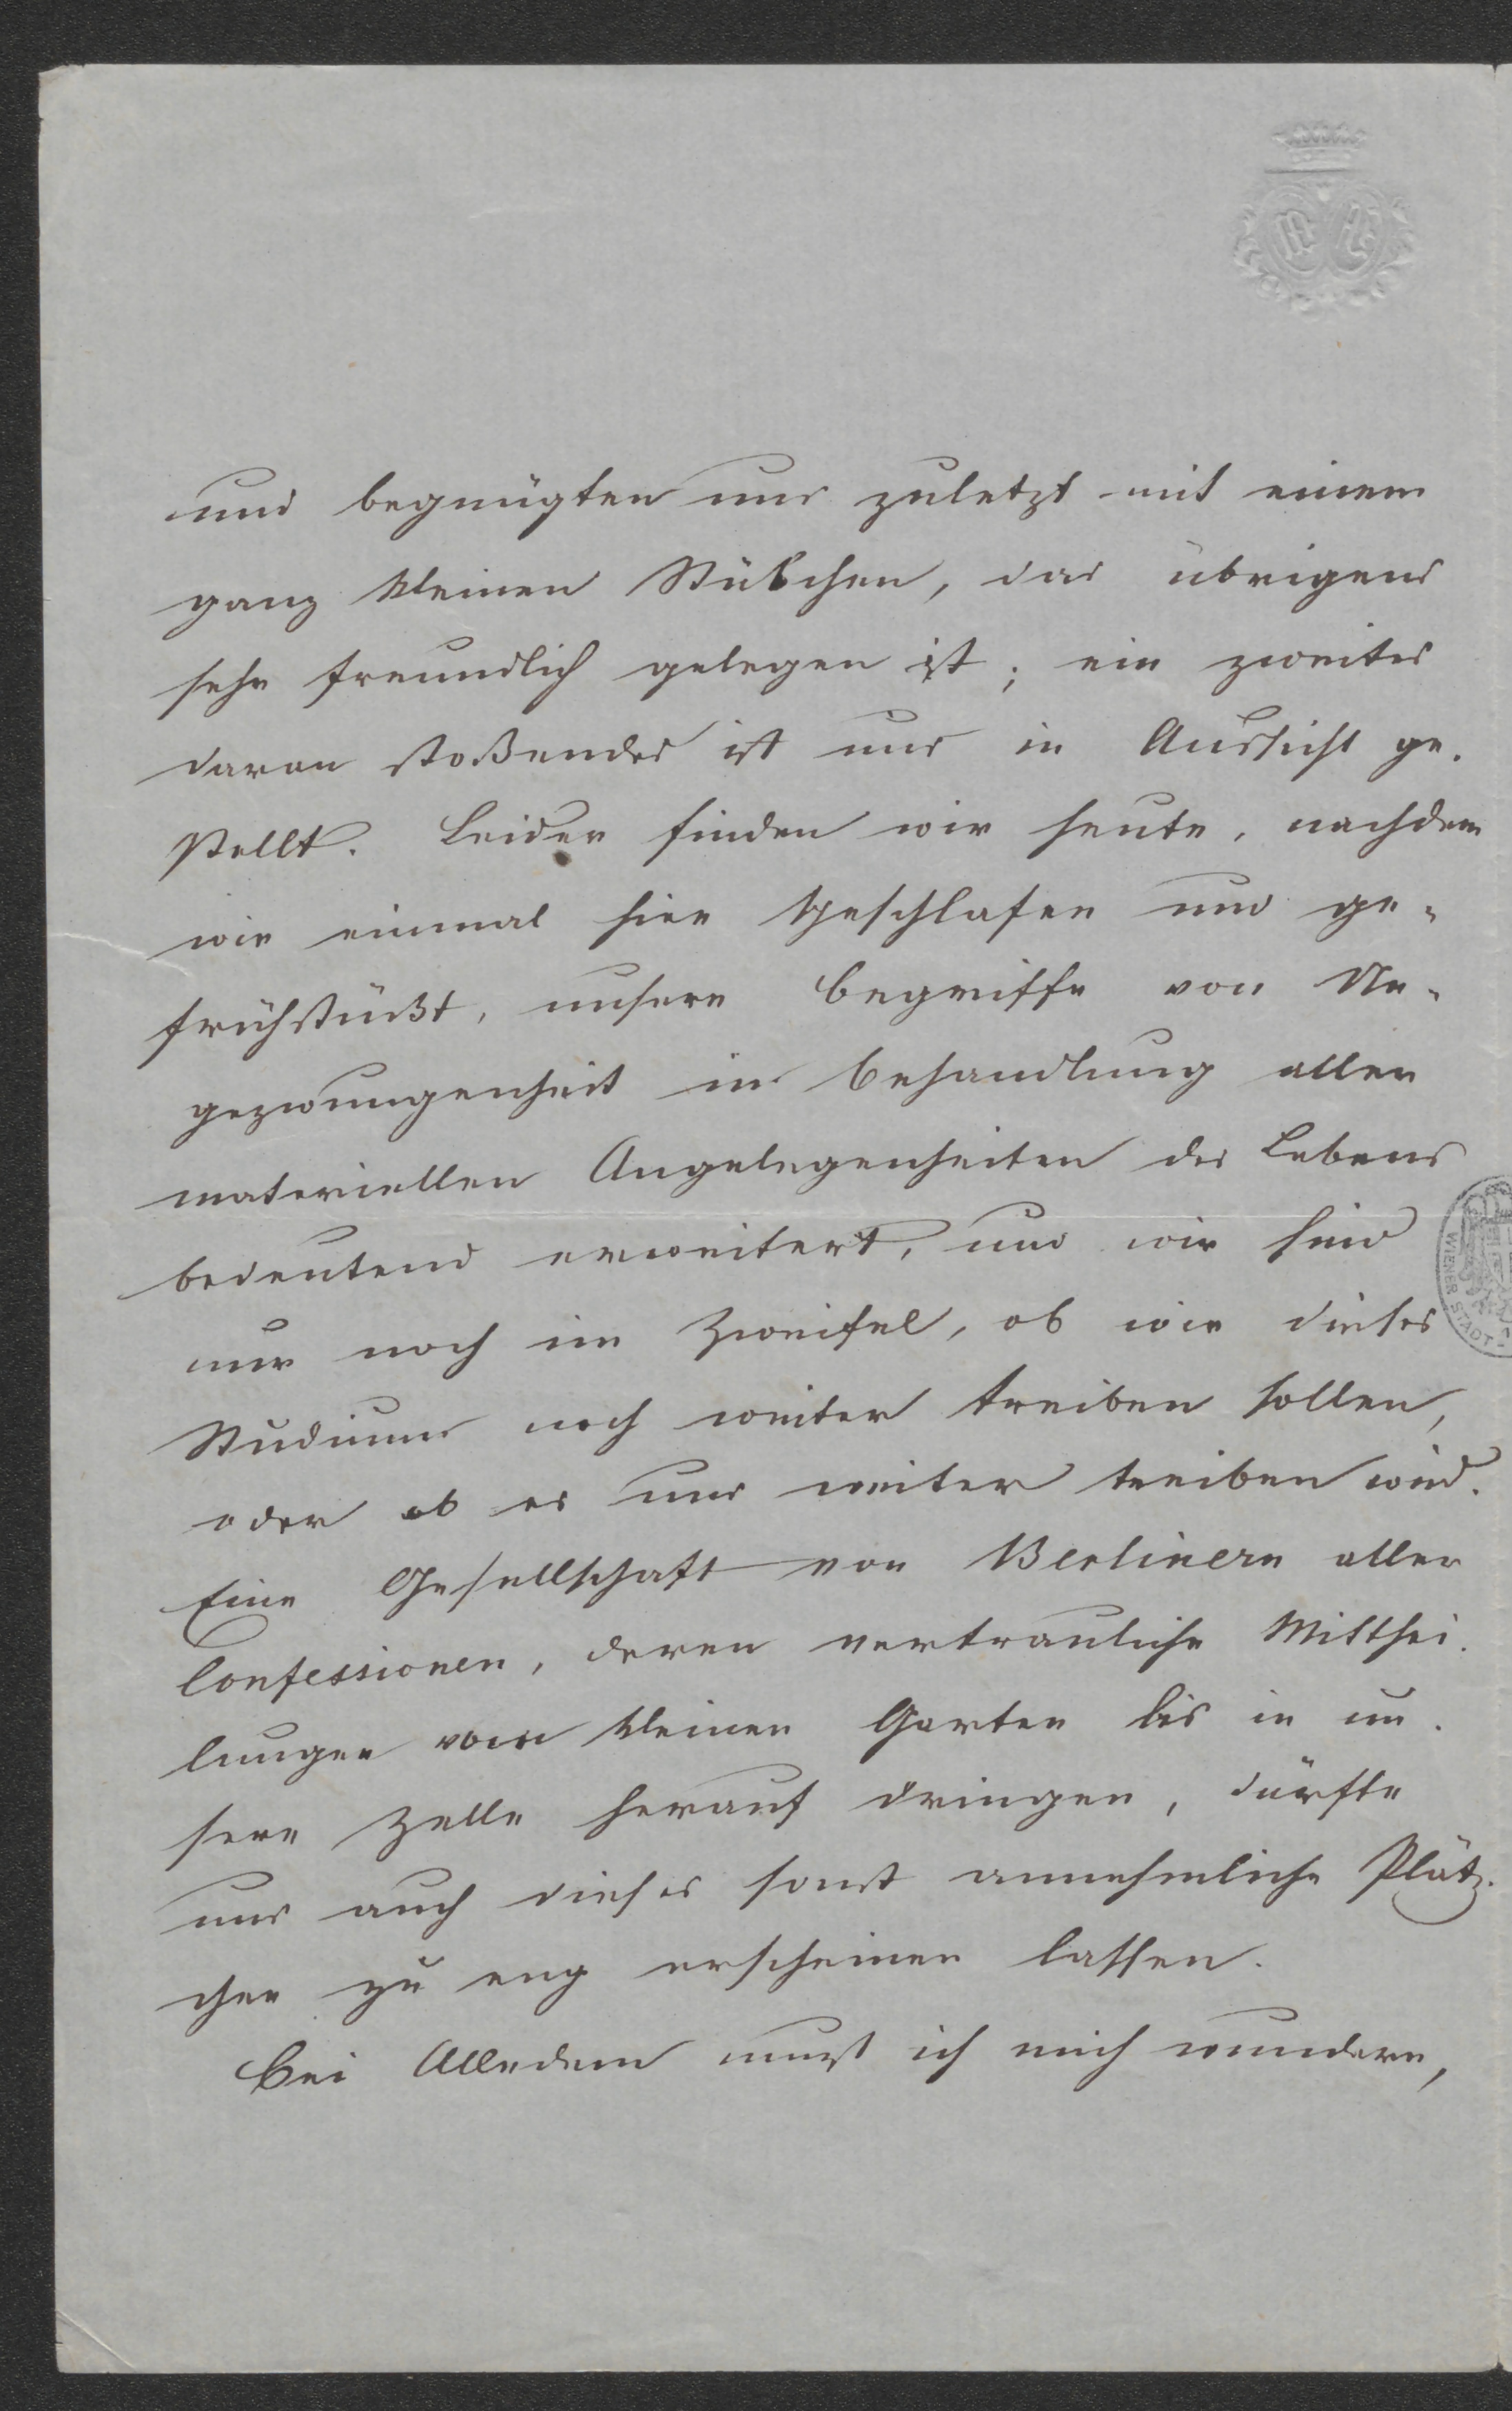 und begnügten uns zuletzt mit einem
ganz kleinen Stübchen, das übrigens
sehr freundlich gelegen ist; ein zweites
daran stoßendes ist uns in Aussicht ge-
stellt. Leider finden wir heute, nachdem
wir einmal hier geschlafen und ge-
frühstückt, unsere Begriffe von Un-
gezwungenheit in Behandlung aller
materiellen Angelegenheiten des Lebens
bedeutend erweitert, und wir sind
nur noch im Zweifel, ob wir dieses
Studium noch weiter treiben sollen,
oder ob es uns weiter treiben wird.
Eine Gesellschaft von Berlinern aller
Confessionen, deren vertrauliche Mitthei-
lungen vom kleinen Garten bis in un-
sere Zelle herauf dringen, dürfte
uns auch dieses sonst annehmliche Plätz-
chen zu eng erscheinen lassen.
Bei Alledem muß ich mich wundern,
WIENER STADT-